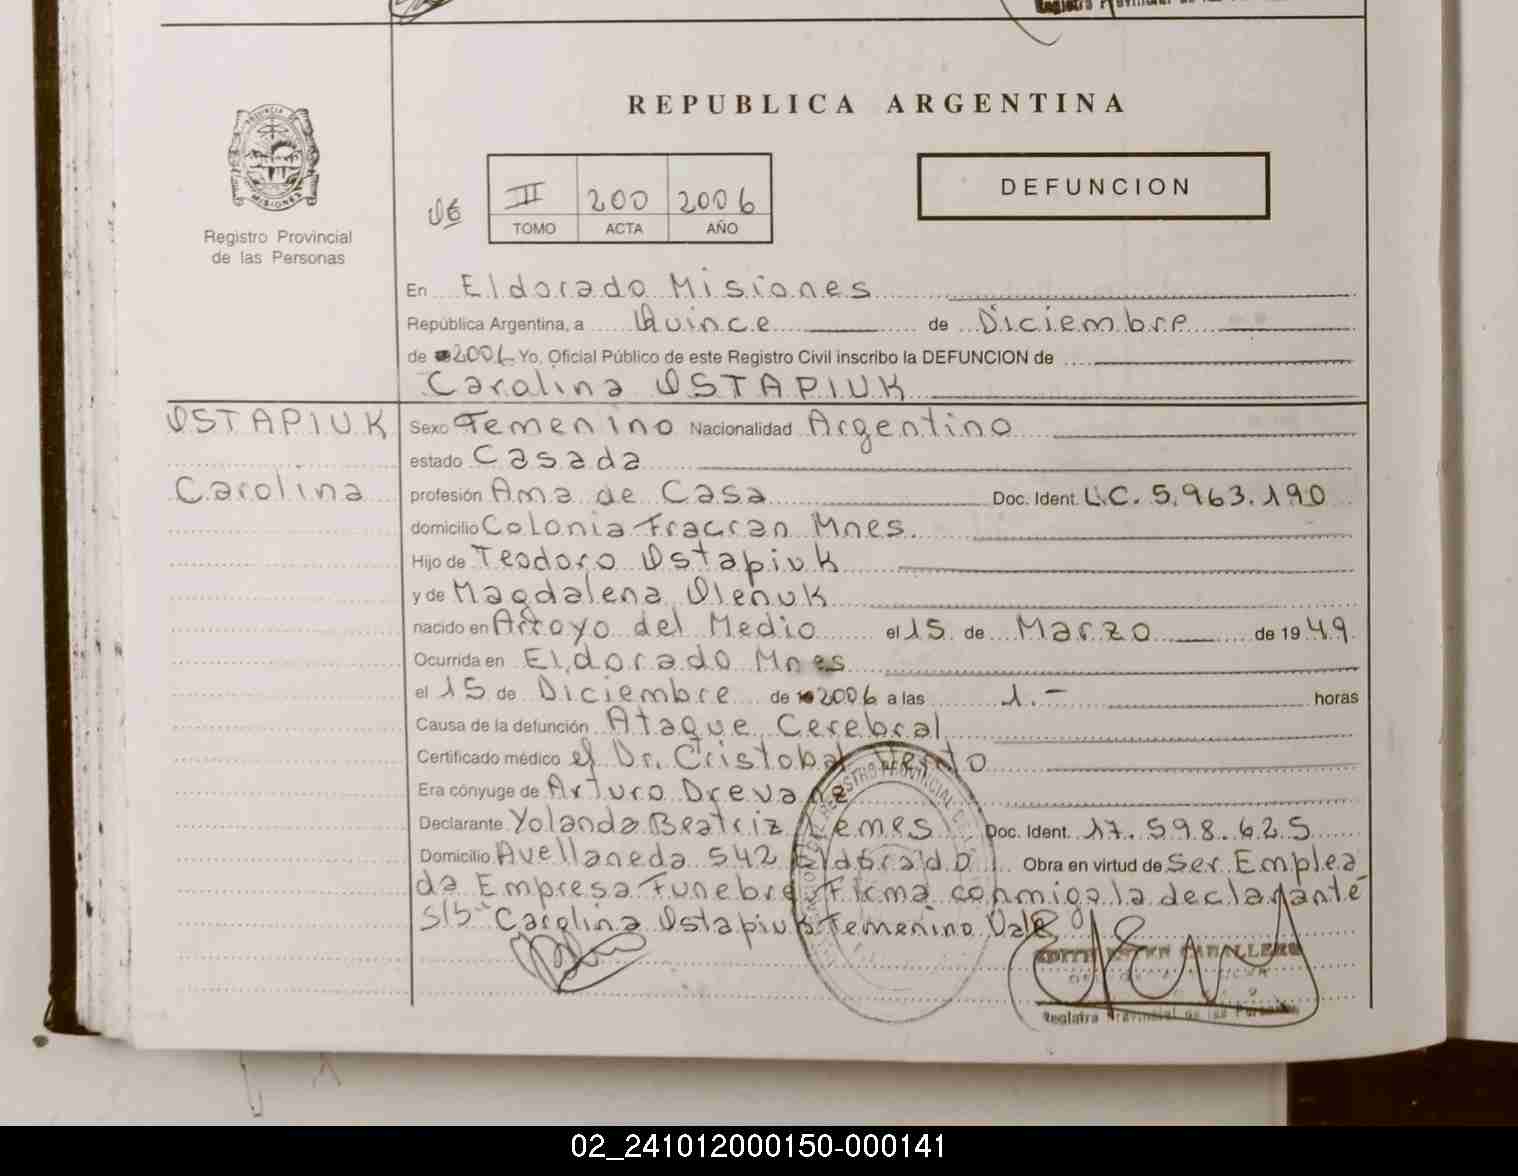 Registro Provincial de las
REPUBLICA ARGENTINA
PROVINCIA DE
MISIONES
Registro Provincial
de las Personas
II 200 2006
TOMO ACTA AÑO
DEFUNCION
En Eldorado Misiones
República Argentina, a Quince de Diciembre
de 2006 Yo, Oficial Público de este Registro Civil inscribo la DEFUNCION de
Carolina OSTAPIUK
OSTAPIUK
Carolina
Sexo Femenino Nacionalidad Argentino
estado Casada
profesión Ama de Casa Doc. Ident. L.C. 5.963.190
domicilio Colonia Fracran Mnes.
Hijo de Teodoro Ostapiuk
y de Magdalena Olenuk
nacido en Arroyo del Medio el 15 de Marzo de 1949.
Ocurrida en Eldorado Mnes
el 15 de Diciembre de 2006 a las 1.- horas
Causa de la defunción Ataque Cerebral
Certificado médico el Dr. Cristobal
Era cónyuge de Arturo Drevanz
Declarante Yolanda Beatriz Lemes Doc. Ident. 17.598.625
Domicilio Avellaneda 542 Eldorado Obra en virtud de Ser Emplea
da Empresa Funebre Firma conmigo la declarante
S/b "Carolina Ostapiuk Femenino Vale
REGISTRO PROVINCIAL
CABALLERO
Registro Provincial de las Personas
02_241012000150-000141